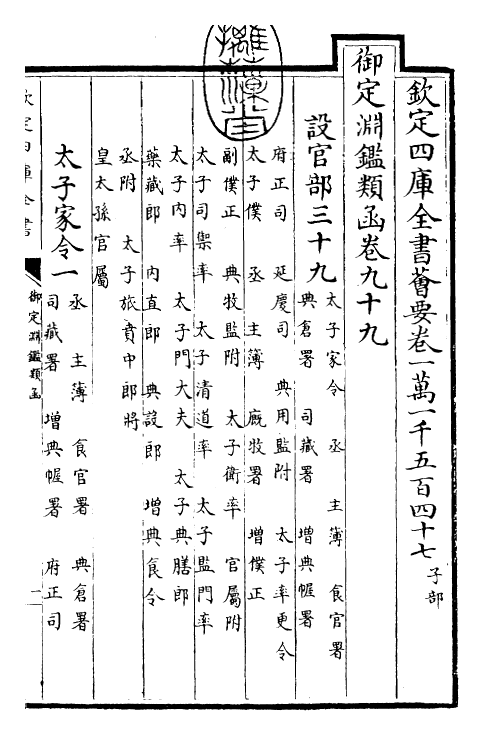 欽定四庫全書薈要卷一萬一千五百四十七 子部
御定淵鑑類函卷九十九
設官部三十九
太子家令 丞 主簿 食官署
典倉署 司藏署 增典幄署
府正司 延慶司 典用監附 太子率更令
太子僕 丞 主簿 廐牧署 增僕正
副僕正 典牧監附 太子衛率 官屬附
太子司禦率 太子清道率 太子監門率
太子內率 太子門大夫 太子典膳郎
藥藏郎 內直郎 典設郎 增典食令
丞附 太子旅賁中郎將
皇太孫官屬
太子家令一
丞 主簿 食官署 典倉署
司藏署 增典幄署 府正司
欽定四庫全書
御定淵鑑類函
一